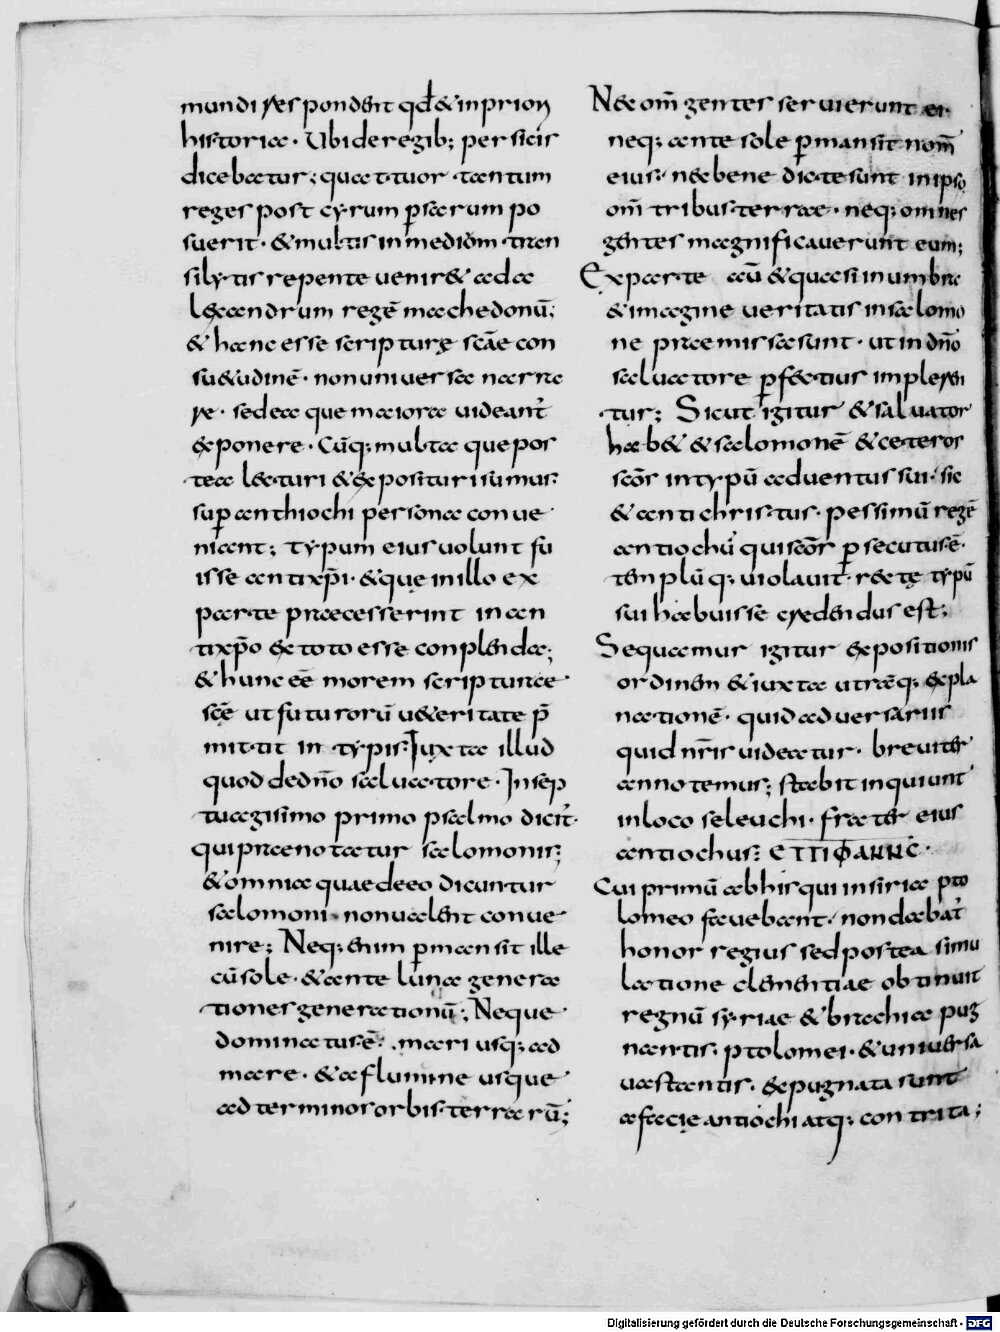 mundi respondent qđ & in priorꝝ
historia · Ubi de regib; persicis
dicebatur; quattuor tantum
reges post cyrum ꝑsarum po
suerit · & multis in mediōm trans
silytis repente venir& ad a
lexandrum regē machedonū;
& hanc esse scripturę scāe con
su&udinē · non universa narra
re · sed ea que maiora videant᷑
exponere · Cūq; multa que pos
tea lecturi & exposituri sumus
suꝑ anthiochi persona conve
niant; typum eius volunt fu
isse antixp̄i · & que in illo ex
parte praecesserint in an
tixp̄o ex toto esse conplenda;
& hunc eē morem scripturae
scē ut futurorū u&eritate p̄
mittit in typis; Iuxta illud
quod de dn̄o salvatore · In sep
tuagisimo primo psalmo dicit᷑·
qui praenotatur salomonis;
& omnia quae de eo dicuntur
salomoni · non valent conve
nire; Neq; enim ꝑmansit ille
cū sole · & ante luna genera
tiones generationū; Neque
dominatus ē · a mari usq; ad
mare · & a flumine usque
ad terminos orbis terrarū;
Nec om̄ gentes servierunt ei·
neq; ante sole ꝑmansit nom̄
eius · nec bene dictae sunt in ipso
om̄ tribus terrae · neq; omnes
gentes magnificaverunt eum;
Ex parte aū & quasi in umbra
& imagine veritatis in salomo
ne praemissa sunt · ut in dn̄o
salvatore ꝑfectius impleren
tur; Sicut igitur & salvator
hab& & salomonē & ceteros
scōr in typū adventus sui · sic
& antichristus · pessimū regē
antiochū qui scōr ꝑsecutus ē ·
templūq; violavit · rectę typū
sui habuisse credendus est;
Sequamur igitur expositionis
ordinem & iuxta utrāq; expla
nationē · quid adversariis
quid nr̄is videatur · breviter
annotemus; stabit inquiunt
in loco seleuchi · frater eius
antiochus; ΕΠΙΦΑΝΗC ·
Cui primū ab his qui in siria pto
lomeo favebant · non dabat᷑
honor regius sed postea simu
latione clementiae obtinuit
regnū syriae & brachia pug
nantis · ptolomei · & universa
vastantis · expugnata sunt
a facię antiochi atq; contrita;
Digitalisierung gefördert durch die Deutsche Forschungsgemeinschaft · DFG